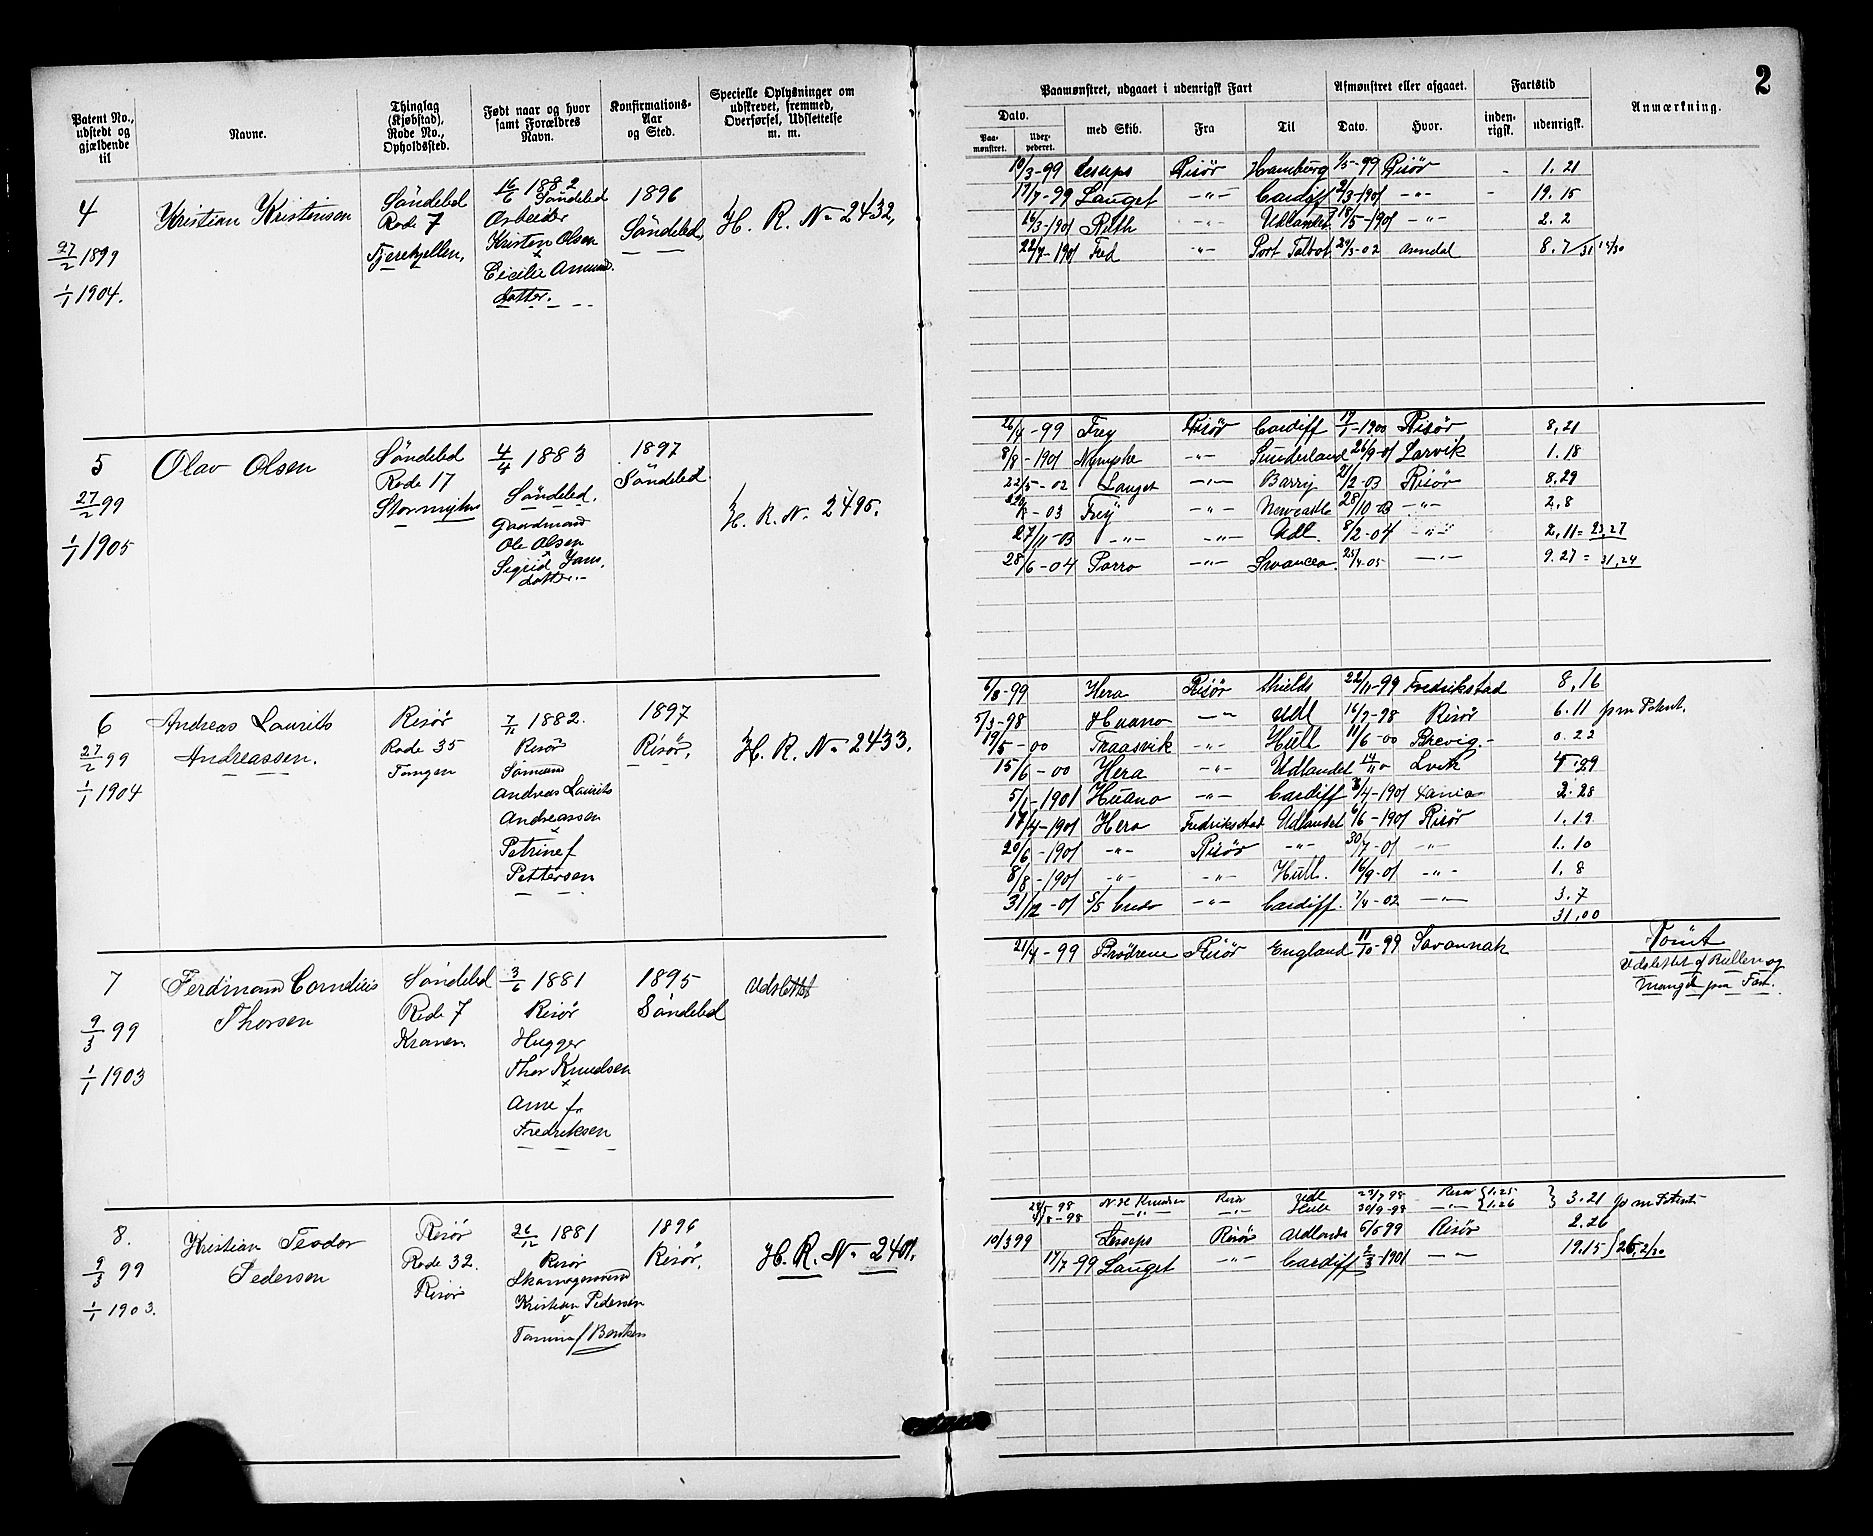 2
Patent No., udstedt og gjældende til
Navne.
Thinglag (Kjøbstad), Rode No., Opholdssted.
Født naar og hvor samt Forældres Navn.
Konfirmations- Aar og Sted.
Specielle Oplysninger om udskrevet, fremmed, Overførsel, Udslettelse m. m.
Paamønstret, udgaaet i udenrigsk Fart
Dato.
Paa- mønstret.
Udex- pederet.
med Skib.
Fra
Til
Afmønstret eller afgaaet.
Dato.
Hvor.
Fartstid
inden- rigsk.
udenrigsk.
Anmærkning.
4
27/2 1899
1/1 1904.
Kristian Kristensen
Søndeled
Rode 7
Fjerekjellen,
16/6 1882
Søndeled
Arbeider
Kristen Olsen
x
Cecilie Amund
datter.
1896
Søndeled,
H. R. No 2432,
10/3-99 Lesseps Risör Hamburg 1/5-99 Risör - 1. 21
17/7-99 Lauget -"- Cardiff 2/3-1901 -"- - 19. 15
16/3-1901 Ruth -"- Udlandet 18/5-1901 -"- 2. 2
22/7-1901 Fred " Port Talbot 29/3-02 Arendal 8. 7
5
27/2 99
1/1 1905
Olav Olsen
Søndeled
Rode 17
Stormyhr
4/4 1883
Søndeled.
Gaardmand
Ole Olsen
x
Sigrid Jans.
datter.-
1897
Søndeled
H. R. N. 2495.
26/4-99 Frey Risör Cardiff 17/1-1900 Risör 8,21
8/8-1901 Nymphe -"- Sunderland 26/9-01 Larvik 1. 18
22/5-02 Lauget -"- Barry 21/2-03 Risör 8.29
-03 Frey -"- Newcastle 28/10-03 -"- 2,8
27/11-03 -"- -"- Udl. 8/2-04 -"- 2,11= 23,27
28/6-04 Parra -"- Swansea. 25/4-05 -"- 9.27= 31,24
6
27/2 99
1/1 1904
Andreas Laurits
Andreassen.
Risör
Rode 35
Tangen
1882.
Risör
Sømand
Andreas Laurits
Andreassen
x
Petrine f
Pettersen
1897
Risör,
H. R. No 2433.
6/3-99 Hera Risör Shields 22/11-99 Fredrikstad 8,16
5/3-98 Huano -"- Udl 16/9-98 Risör 6.11 
19/5-00 Traasvik -"- Hull 11/6-00 Brevig.- 0.22
15/6-00 Hera -"- Udlandet 14/11 00 Lvik 4.29
5/1-1901 Huano -"- Cardiff 3/4-1901 2.28
17/4-1901 Hera Fredriksstad Udlandet 6/6-1901 Risör 1.19
20/6-1901 -"- Risör -"- 30/7-01 -"- 1. 10
8/8-1901 -"- -"- Hull. 16/9-01 -"- 1, 8
31/12-01 S/S -"- Cardiff. 7/4-02 -"- 3. 7
31,00
7
9/3 99
1/1 1903
Ferdinand Cornelius
Thorsen
Søndeled
Rode 7
Kranen.
3/6 1881
Risör
Hugger
Thor Knudsen
x
Anne f.
Fredriksen
1895
Søndeled
Udslettet
21/4-99 Brödrene Risör England 11/10-99 Savannah
Römt
Udslettet af Rullen og
Mangel paa Fart.
8.
9/3 99
1/1 1903.
Kristian Teodor
Pedersen
Risör
Rode 32.
Risör
26/12 1881
Risör
Kristian Pedersen
1896
Risör,
H. R. No 2401.
-98 N. H. Knudsen Risör Udl 23/7 98 Risör 1.25 3.21
-98 -"- -"- Hull 30/9-98 -"- 1.26
10/3 99 Lesseps Risör Udlandet 6/5 99 Risör 2.26
17/7-99 Lauget -"- Cardiff 2/3-1901 -"- 19.15